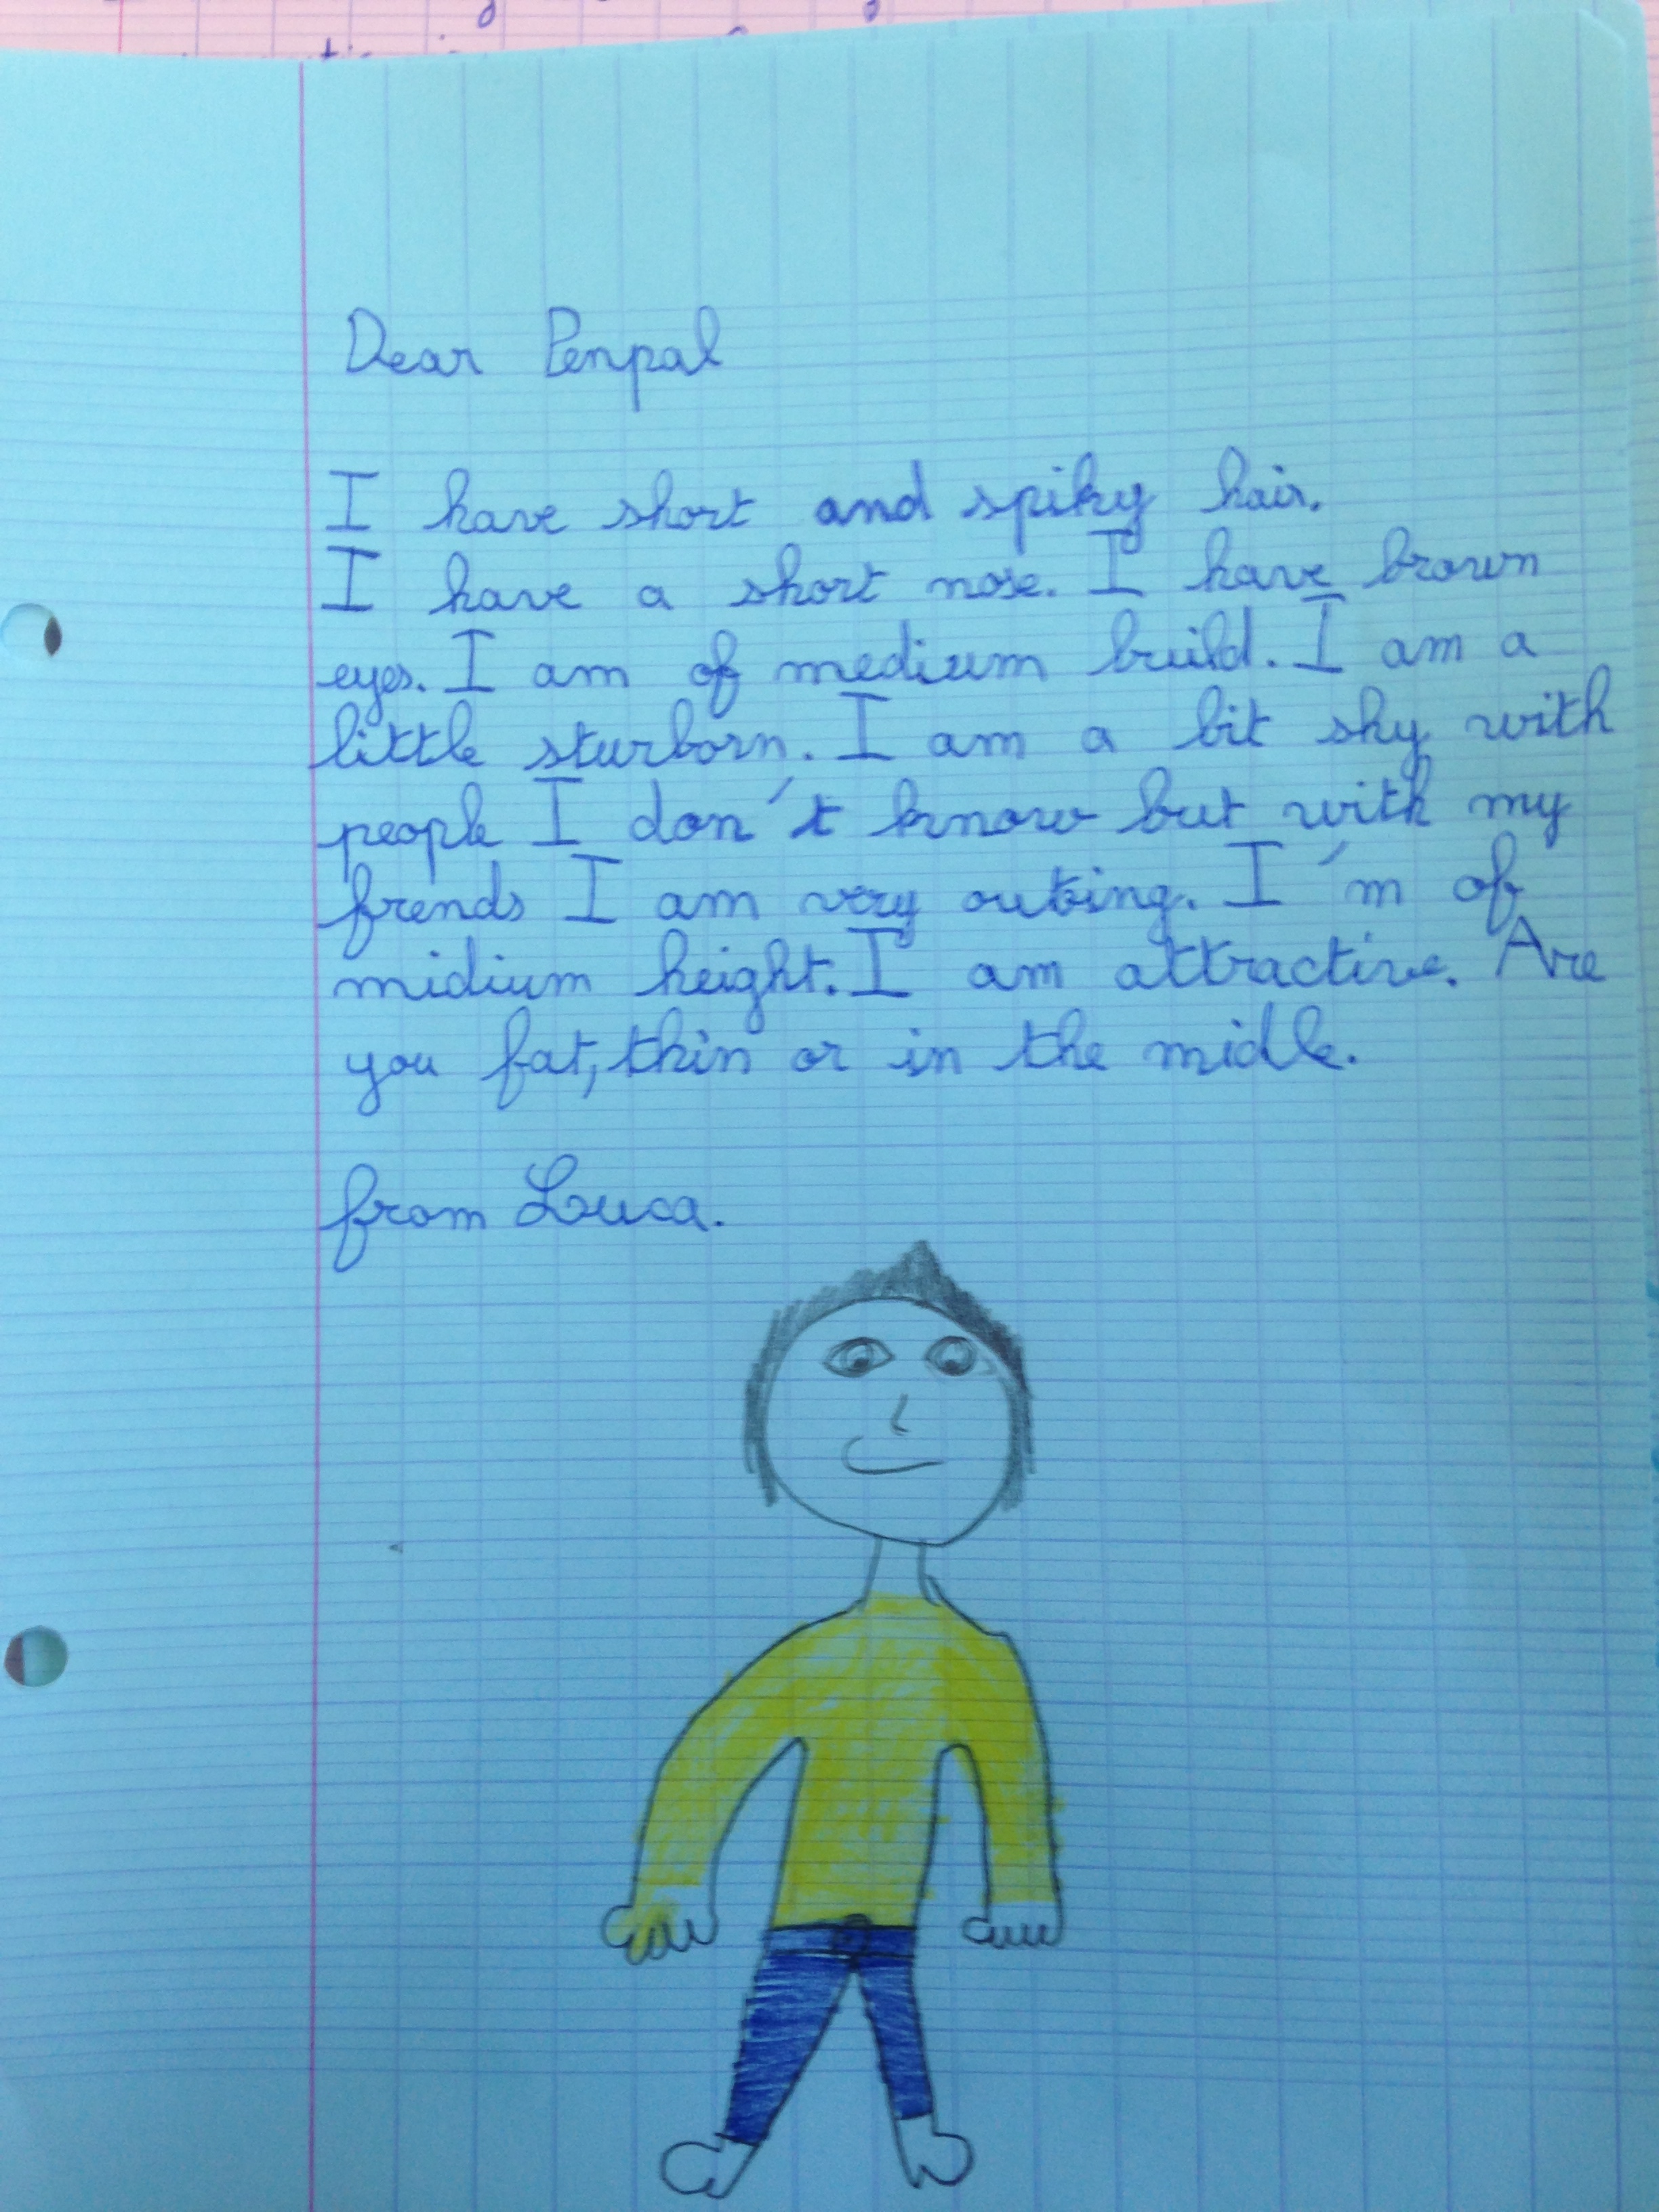 Dear Penpal
I have short and spiky hair.
I have a short nose. I have brown
eyes. I am of medium build. I am a
little sturborn. I am a bit shy with
people I don't know but with my
frends I am very outing. I'm of
midium height. I am attractive. Are
you fat, thin or in the midle.
from Luca.